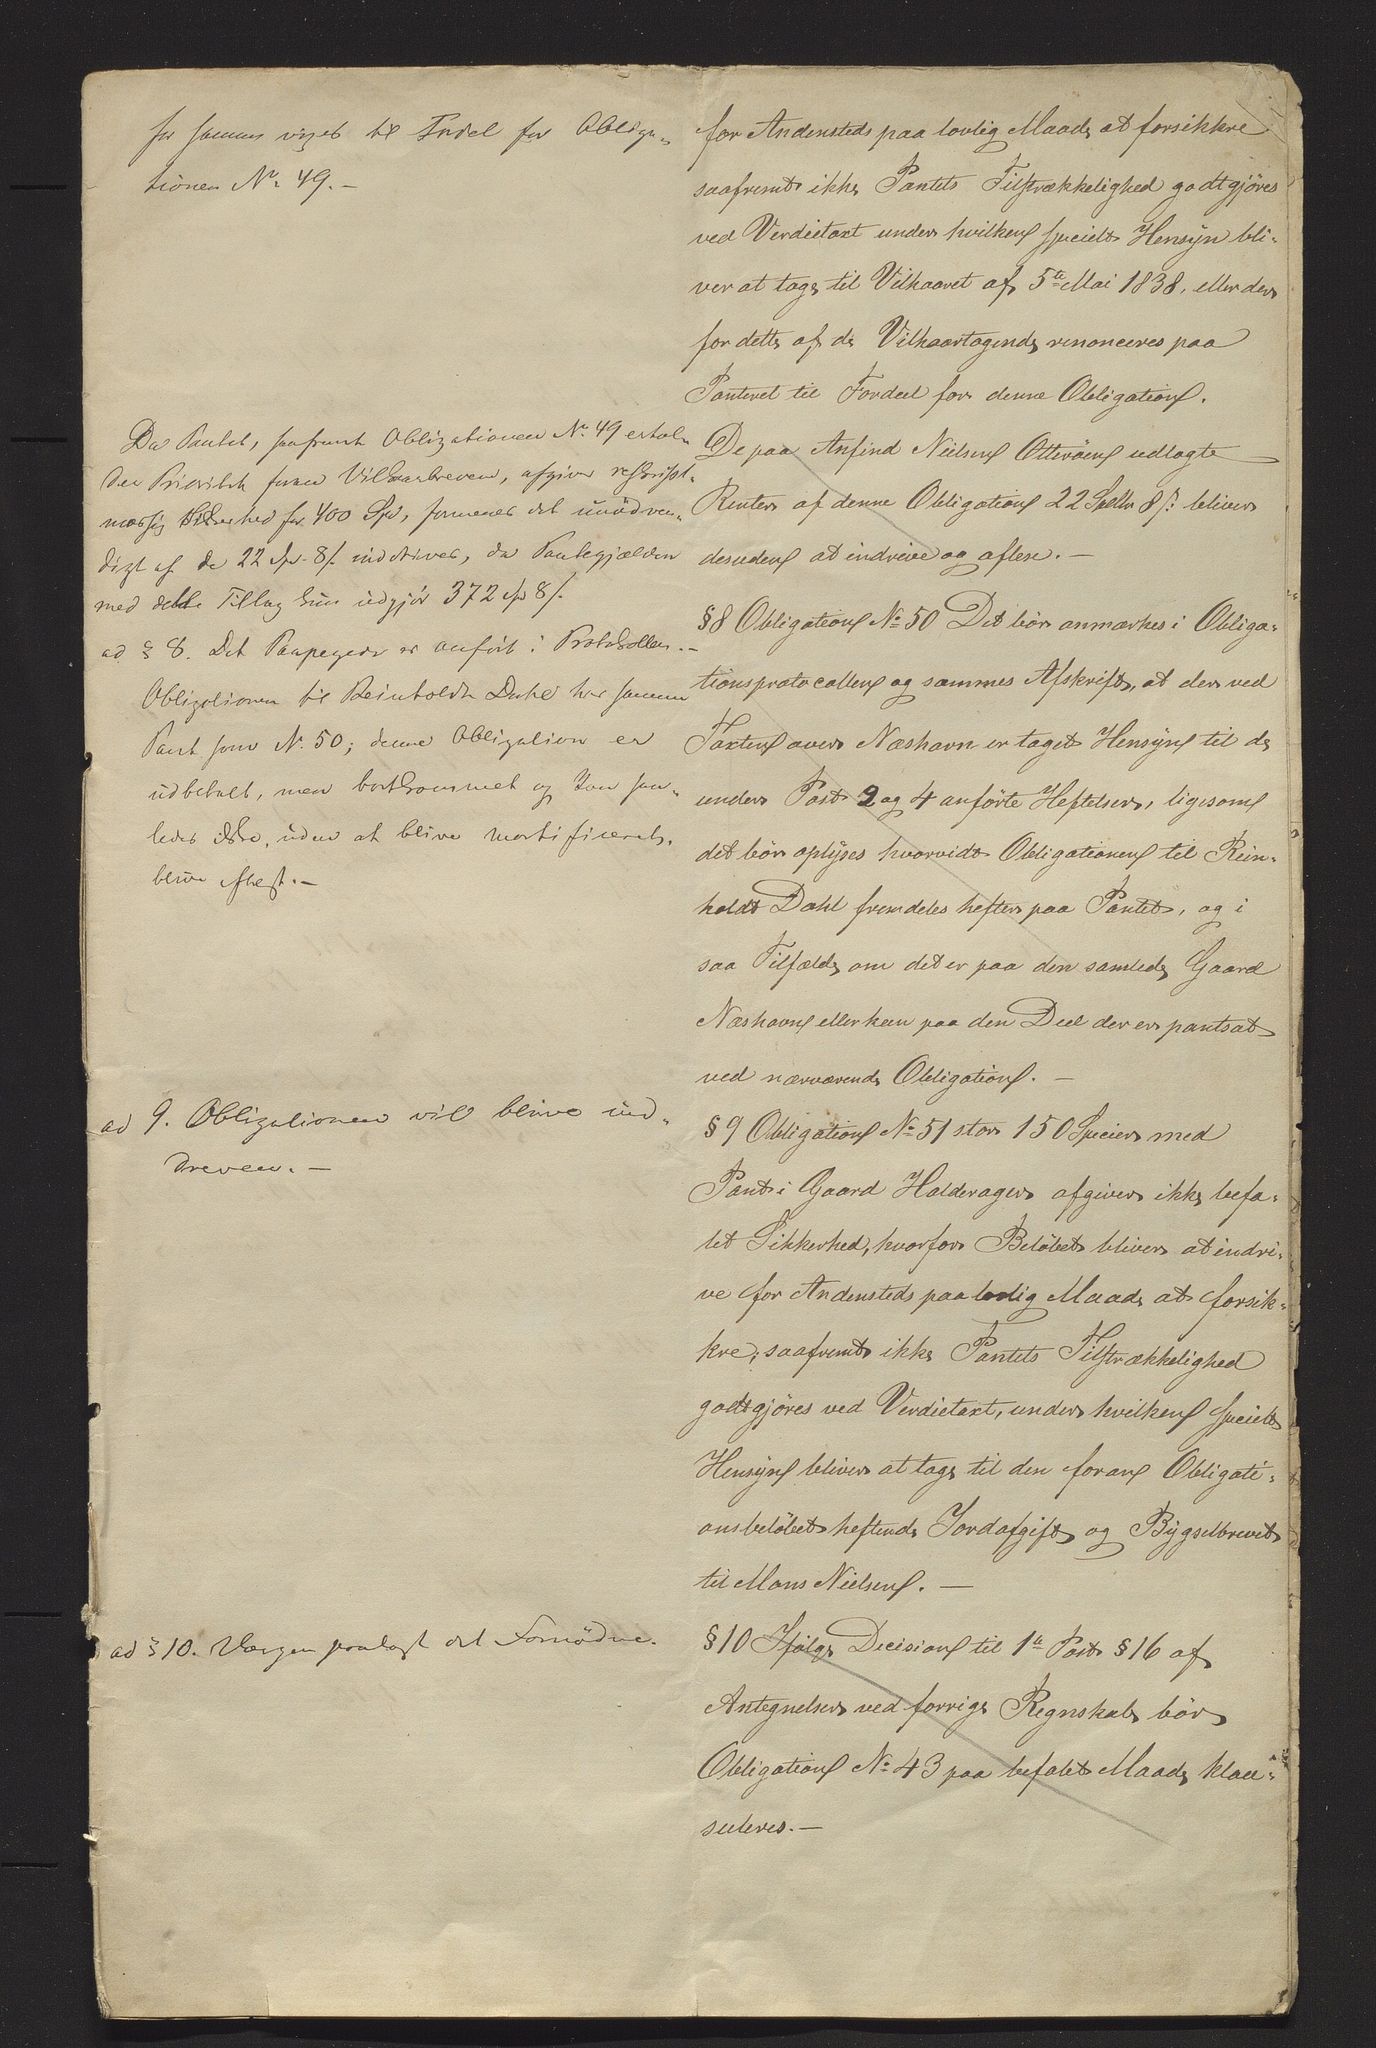 for samme viges til Fordel for Obliga-
tionen No 49.-
Da Pantet, saafremt Obligationen No 49 erhol-
der Prioritet foran Vilkaarbreven, afgiver reskript-
mæssig Sikkerhed for 400 Spd, formenes det unödven-
digt at de 22 Spd. 8/. inddrives, da Pantegjælden
med dette Tillæg kun udgjör 372 Spd 8/.
ad § 8. Det Paapegede er anført i Protokollen.-
Obligationen til Reinholdt Dahl har samme
Pant som No. 50; denne Obligation er
udbetalt, men bortkommet og kan saa-
ledes ikke, uden at blive mortificeret,
blive aflæst.-
ad 9. Obligationen vil blive ind-
dreven.-
ad § 10. Værgen paalagt det Fornödne.
for Andensteds paa lovlig Maade at forsikkre
saafremt ikke Pantets Tilstrækkelighed godtgjöres
ved Verdietaxt under hvilken specielt Hensyn bli-
ver at tage til Vilkaaret af 5te Mai 1838, eller der
for dette af de Vilkaartagende renonceres paa
Panteret til Fordeel for denne Obligation.
De paa Anfind Nielsen Otteröen udlagte
Renter af denne Obligation 22 Spdlr 8 s: bliver
desuden at inddrive og aflese.-
§8 Obligation No 50 Det bör anmærkes i Obliga-
tionsprotocollen og sammes Afskrift, at der ved
Taxten over Næshavn er taget Hensyn til de
under Post 2 og 4 anförte Heftelser, ligesom
det bör oplyses hvorvidt Obligationen til Rein-
holdt Dahl fremdeles hefter paa Pantet, og i
saa Tilfælde om det er paa den samlede Gaard
Næshavn eller kun paa den Deel der er pantsat
ved nærværende Obligation.-
§9 Obligation No 51 stor 150 Specier med
Pant i Gaard Halderager afgiver ikke befa-
let Sikkerhed, hvorfor Belöbet bliver at indri-
ve for Andensteds paa lovlig Maade at forsik-
kre, saafremt ikke Pantets Tilstrækkelighed
godtgjöres ved Verdietaxt, under hvilken specielt
Hensyn bliver at tage til den foran Obligati-
onsbelöbet heftende Jordafgift og Bygselbrevet
til Mons Nielsen.-
§10 Ifölge Decision til 1te Post §16 af
Antegnelser ved forrige Regnskab bör
Obligation No 43 paa befalet Maade klau-
suleres.-